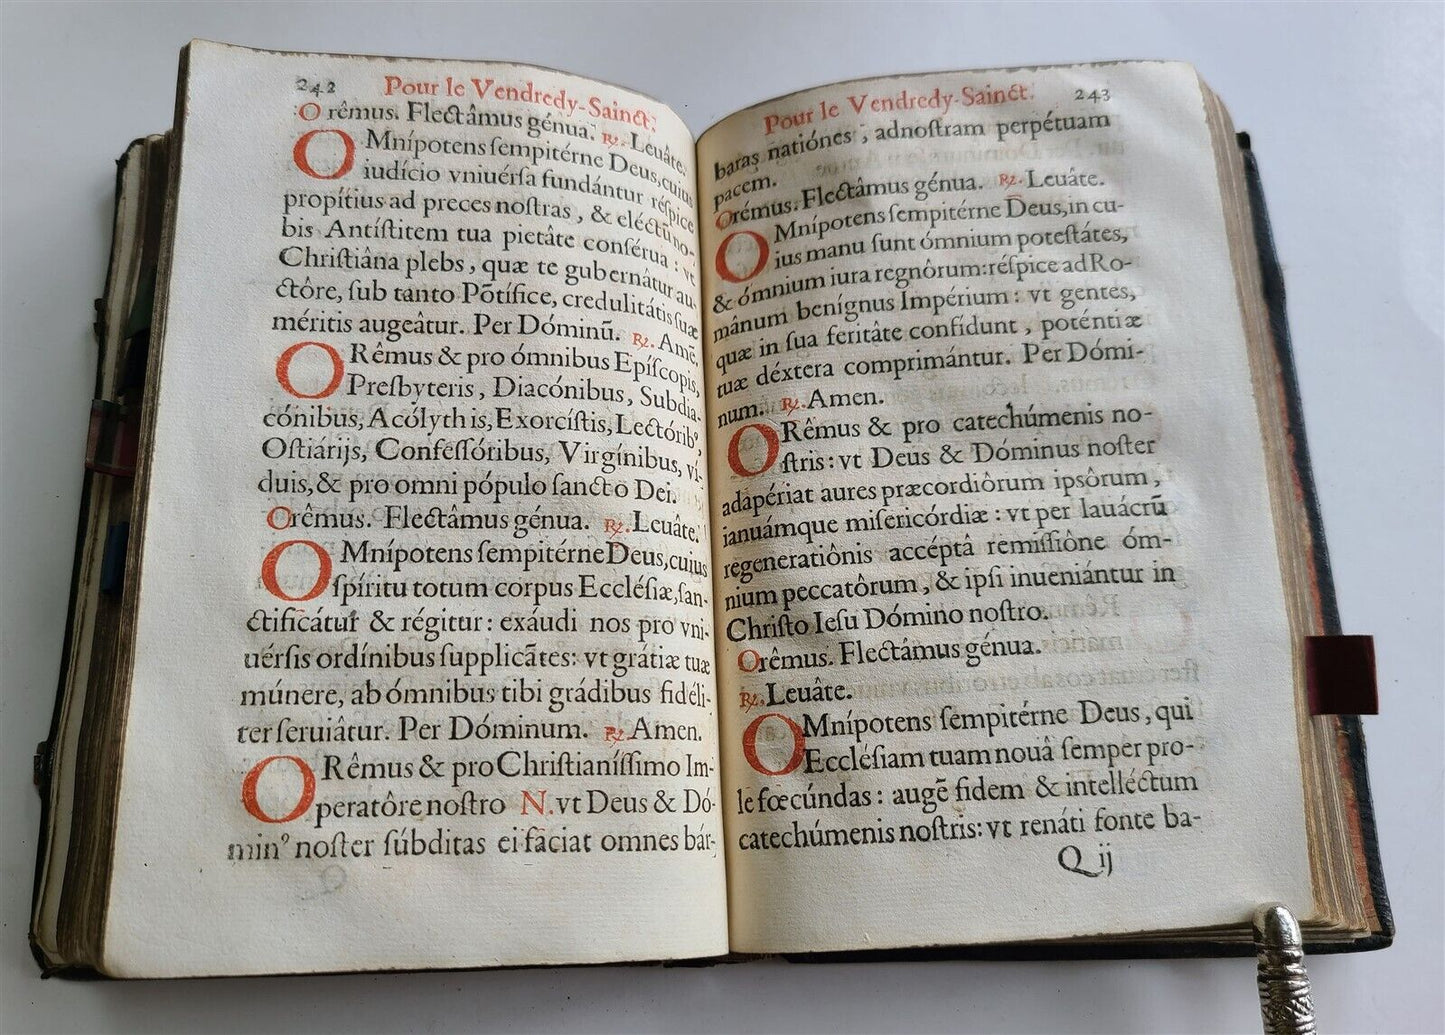 242 Pour le Vendredy-Sainct.
Orêmus. Flectâmus génua. ℟. Leuâte.
OMnípotens ſempitérne Deus, cuius
iudício vniuérſa fundántur réſpice
propítius ad preces noſtras, & eléctũ no-
bis Antíſtitem tua pietâte conſérua: vt
Chriſtiâna plebs, quæ te gubernâtur au-
ctôre, ſub tanto Põtífice, credulitátis ſuæ
méritis augeâtur. Per Dóminũ. ℟. Amẽ.
ORêmus & pro ómnibus Epíſcopis,
Preſbyteris, Diacónibus, Subdia-
cónibus, Acólythis, Exorcíſtis, Lectóribꝰ,
Oſtiárijs, Confeſſóribus, Virgínibus, ví-
duis, & pro omni pópulo ſancto Dei.
Orêmus. Flectâmus génua. ℟. Leuâte.
OMnípotens ſempitérne Deus, cuius
ſpíritu totum corpus Eccléſiæ, ſan-
ctificátur & régitur: exáudi nos pro vni-
uérſis ordínibus ſupplicãtes: vt grátiæ tuæ
múnere, ab ómnibus tibi grádibus fidéli-
ter ſeruiâtur. Per Dóminum. ℟. Amen.
ORêmus & pro Chriſtianíſſimo Im-
peratôre noſtro N. vt Deus & Dó-
minꝰ noſter ſúbditas ei fáciat omnes bár-
Pour le Vendredy-Sainct. 243
baras natiónes, ad noſtram perpétuam
pacem.
Orémus. Flectâmus génua. ℟. Leuâte.
OMnípotens ſempitérne Deus, in cu-
ius manu ſunt ómnium poteſtátes,
& ómnium iura regnôrum: réſpice ad Ro-
mânum benígnus Impérium: vt gentes,
quæ in ſua feritâte confídunt, poténtiæ
tuæ déxtera comprimántur. Per Dómi-
num. ℟. Amen.
ORêmus & pro catechúmenis no-
ſtris: vt Deus & Dóminus noſter
adapériat aures præcordiôrum ipſôrum,
ianuámque miſericórdiæ: vt per lauácrũ
regeneratiônis accéptâ remiſſiône óm-
nium peccatôrum, & ipſi inueniántur in
Chriſto Ieſu Dómino noſtro.
Orêmus. Flectámus génua.
℟. Leuâte.
OMnípotens ſempitérne Deus, qui
Eccléſiam tuam nouâ ſemper pro-
le fœcúndas: augẽ fidem & intelléctum
catechúmenis noſtris: vt renáti fonte ba-
Q ij